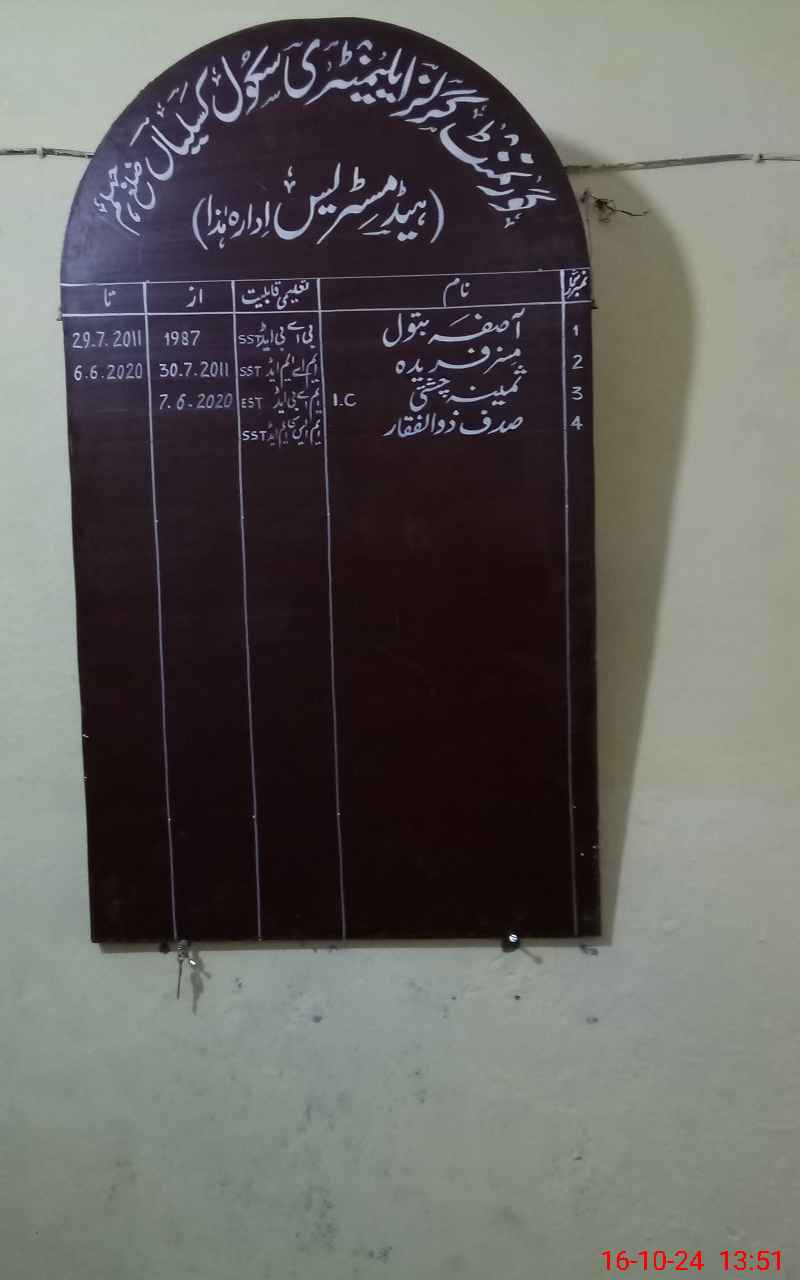 گورنمنٹ گرلز ایلیمنٹری سکول کسلیاں ضلع جہلم
(ہیڈ مسٹریس ادارہ ہذا)
نمبر شمار نام تعلیمی قابلیت از تا
1 آصفہ بتول بی اے بی ایڈ SST 1987 29.7.2011
2 مسز فریدہ ایم اے ایم ایڈ SST 30.7.2011 6.6.2020
3 ثمینہ چشتی I.C ایم اے بی ایڈ EST 7.6.2020
4 صدف ذوالفقار ایم ایڈ SST
16-10-24 13:51